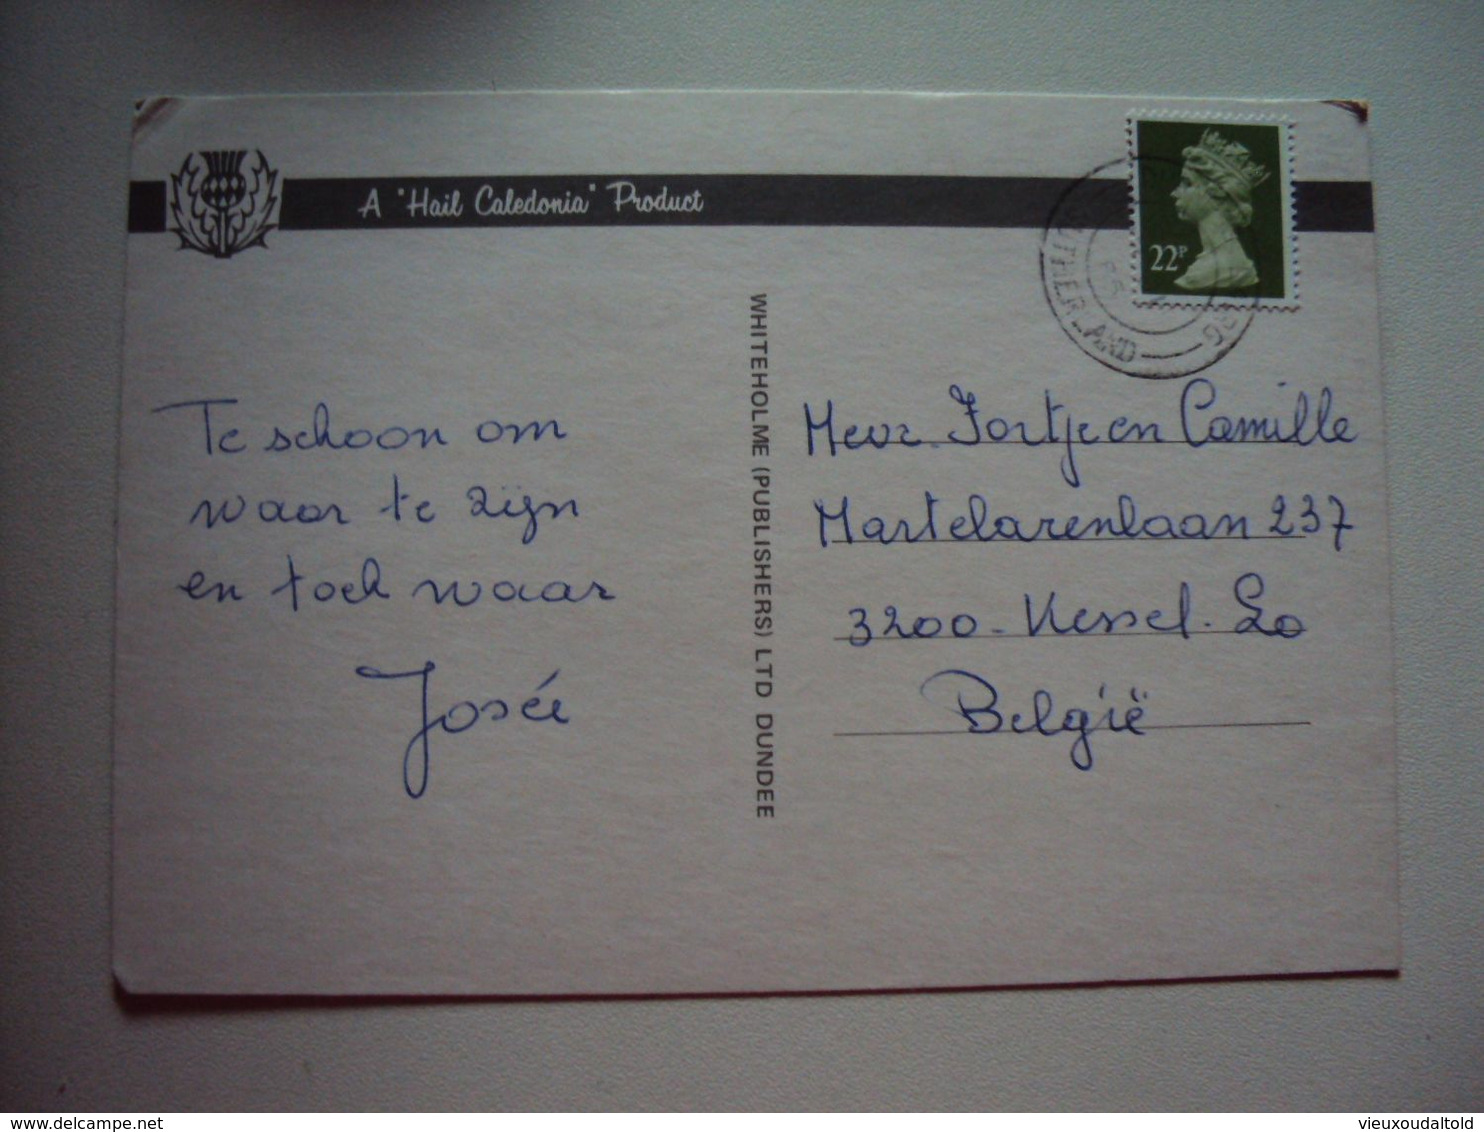 A "Hail Caledonia" Product
22P
SUTHERLAND
WHITEHOLME (PUBLISHERS) LTD DUNDEE
Te schoon om
waar te zijn
en toch waar
Josée
Mevr. Fortje en Camille
Martelarenlaan 237
3200 - Kessel-Lo
België
delcampe.net
vieuxoudaltold